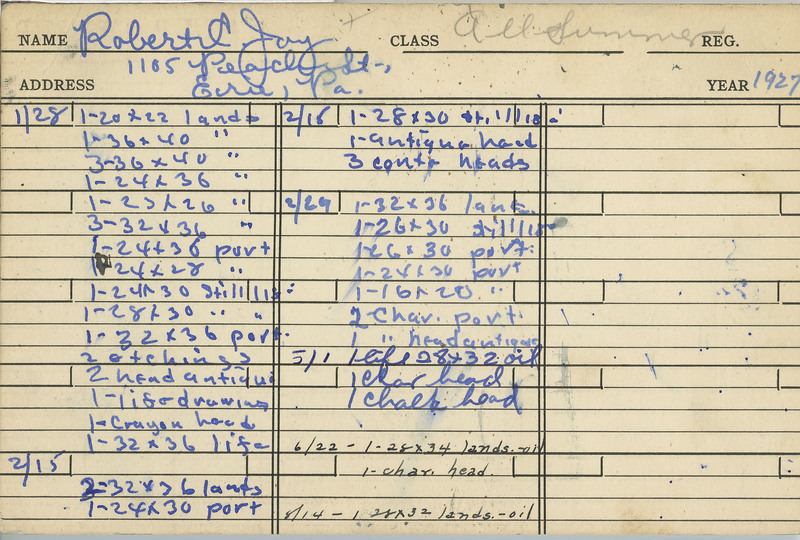 NAME Robert C Jay CLASS All Summer REG.
1105 Peach St.,
ADDRESS Erie, Pa. YEAR 1927
1/28 1-20x22 lands
1-36x40 "
3-36x40 "
1-24x36 "
1-23x26 "
3-32x36 "
1-24x36 port
1-24x28 "
1-24x30 still life
1-28x30 " "
1-32x36 port.
2 etchings
2 head antique
1-life drawing
1-Crayon head
1-32x36 life
2/15
2-32x36 lands
1-24x30 port
2/15 1-28x30 still life
1-antique head
3 conte heads
2/29 1-32x36 lands.
1-26x30 still life
1-26x30 port.
1-24x30 port
1-16x20 "
2-Char. port.
1 " head antique
5/1 1-life 28x32 oil
1 char head
1 chalk head
6/22 - 1-28x34 lands.-oil
1-char. head.
8/14 - 1 28x32 lands.-oil